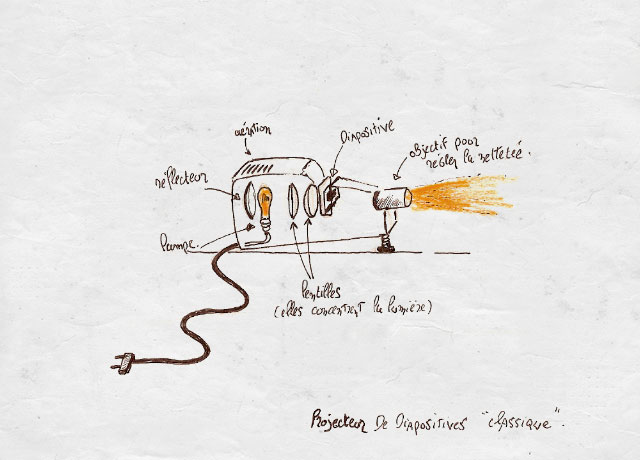 aération
Diapositive
objectif pour
régler la netteté.
réflecteur
lampe
lentilles
(elles concentrent la lumière)
Projecteur De Diapositives "classique".